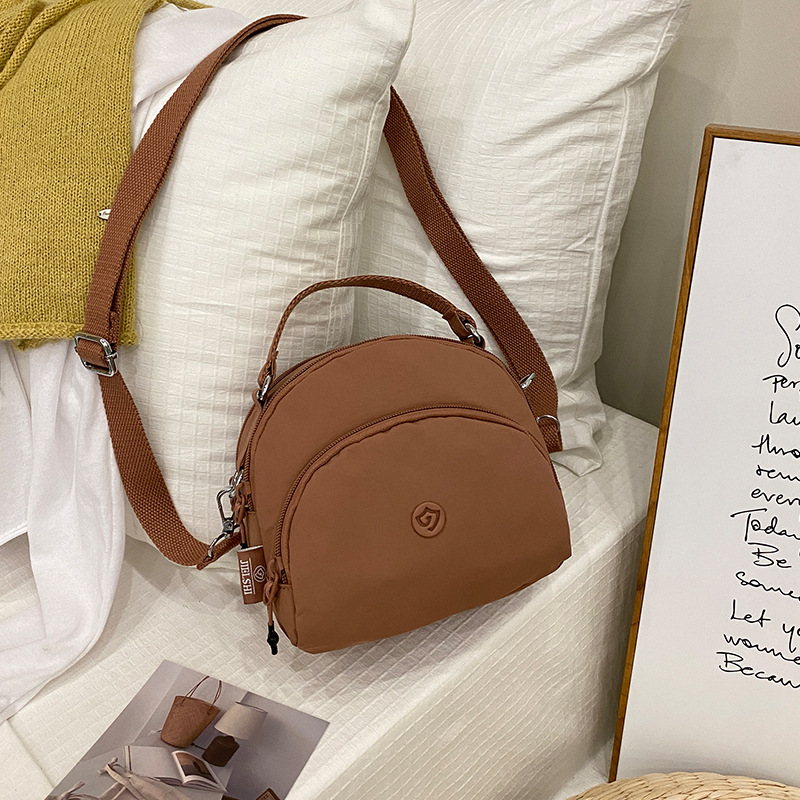 JIELSHI
So
per
lau
thro
rem
even
Today
Be
some
Let yo
wounde
Becau